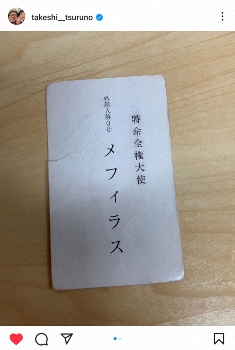 takeshi__tsuruno
特命全権大使
外星人第0号
メフィラス